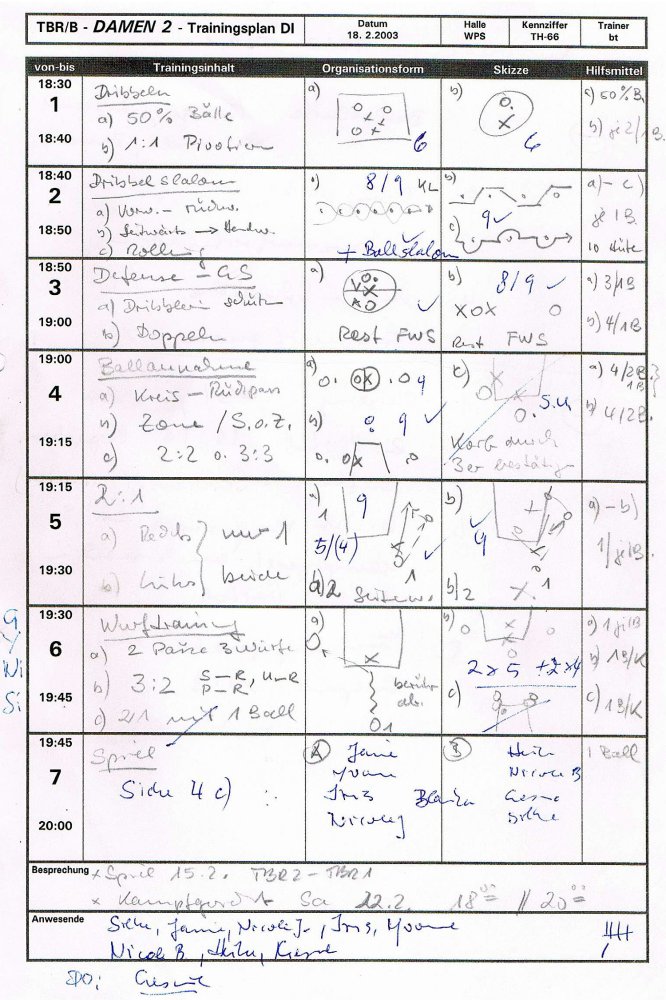 TBR/B - DAMEN 2 - Trainingsplan DI
Datum
18. 2.2003
Halle
WPS
Kennziffer
TH-66
Trainer
bt
von-bis Trainingsinhalt Organisationsform Skizze Hilfsmittel
18:30
1
18:40
Dribbeln
a) 50% Bälle
b) 1:1 Pivotieren
a)
6
b)
6
a) 50% B.
b) je 2/1 B.
18:40
2
18:50
Dribbelslalom
a) Vorw. - rückw.
b) Seitwärts → Handw.
c) Rolling
a) 8/9 KL
+ Ballslalom
b)
c) 9 ✓
a) - c)
je 1B
10 Hüte
18:50
3
19:00
Defense - GS
a) Dribblerin schütz
b) Doppeln
a)
Rest FWS
b) 8/9 ✓
XOX O
Rest FWS
a) 3/1B
b) 4/1B
19:00
4
19:15
Ballannahme
a) Kreis - Rückpass
b) Zone / S.o.Z.
c) 2:2 o. 3:3
a)
9
b) 9 ✓
c)
S.u
Korb durch
3er bestätigen
a) 4/2B
1B
b) 4/2B.
19:15
5
19:30
2:1
a) Rechts
b) links
nur 1
beide
a)
1
9
5/(4)
1
2 Seitenw.
b)
9
1
b) 2
a) - b)
1/je 1B.
19:30
6
19:45
Wurftraining
a) 2 Pässe 3 Würfe
b) 3:2 S-R, U-R
P-R
c) 2/1 mit 1 Ball
a)
1
b)
2 x 5 + 2 x 4
c)
a) 1 je 1B
b) 1B/K
c) 1B/K
19:45
7
20:00
Spiel
Siehe 4 c)
A Janie
Yvonne
Iris
Nicole J
B Heike
Nicole B
Gesine
Silke
1 Ball
Besprechung
x Spiel 15.2. TBR2 - TBR1
x Kampfgericht Sa 22.2. 18°° // 20°°
Anwesende
Silke, Janie, Nicole J., Iris, Yvonne
Nicole B, Heike,
DO: Gesine